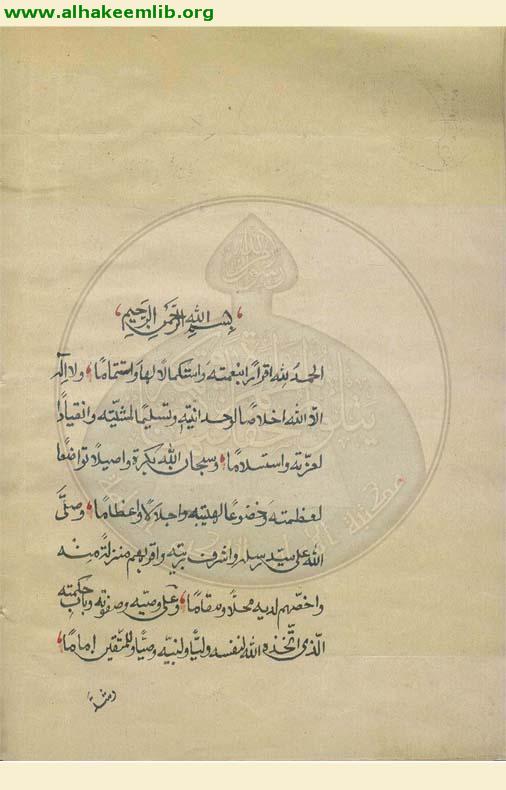 www.alhakeemlib.org
بسم الله الرحمن الرحيم
الحمد لله اقرارا بنعمته واستكمالا لها واستتماما ولا اله
الا الله اخلاصا لوحدانيته وتسليما لمشيته وانقيادا
لعزته واستسلاما وسبحان الله بكرة واصيلا تواضعا
لعظمته وخضوعا لهيبته واجلالا واعظاما وصلى
الله على سيد رسله واشرف بريته واقربهم منزلة منه
واخصهم لديه محلا ومقاما وعلى وصيه وصفوته وباب حكمته
الذى اتخذه الله لنفسه وليا ولنبيه وصيا وللمتقين اماما